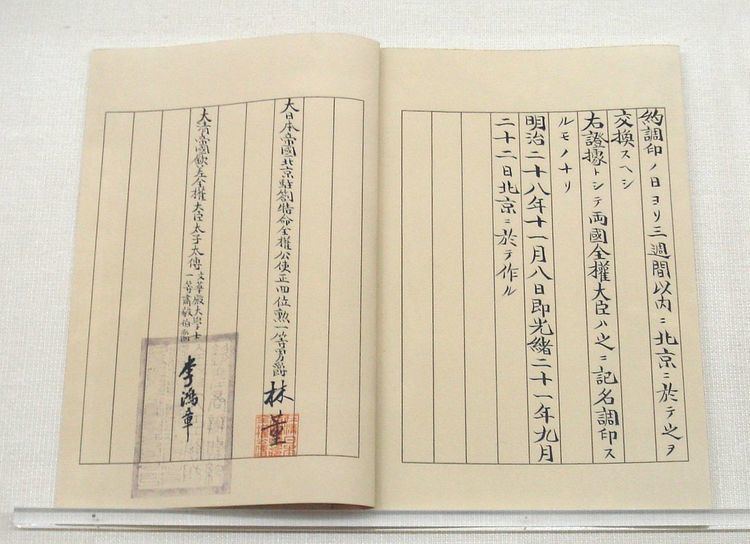 約調印ノ日ヨリ三週間以内ニ北京ニ於テ之ヲ
交換スヘシ
右證據トシテ両國全權大臣ハ之ニ記名調印ス
ルモノナリ
明治二十八年十一月八日即光緒二十一年九月
二十二日北京ニ於テ作ル
大日本帝國北京駐箚特命全權公使正四位勲一等男爵 林董
大清帝國欽差全權大臣太子太傅文華殿大學士
一等肅毅伯爵 李鴻章